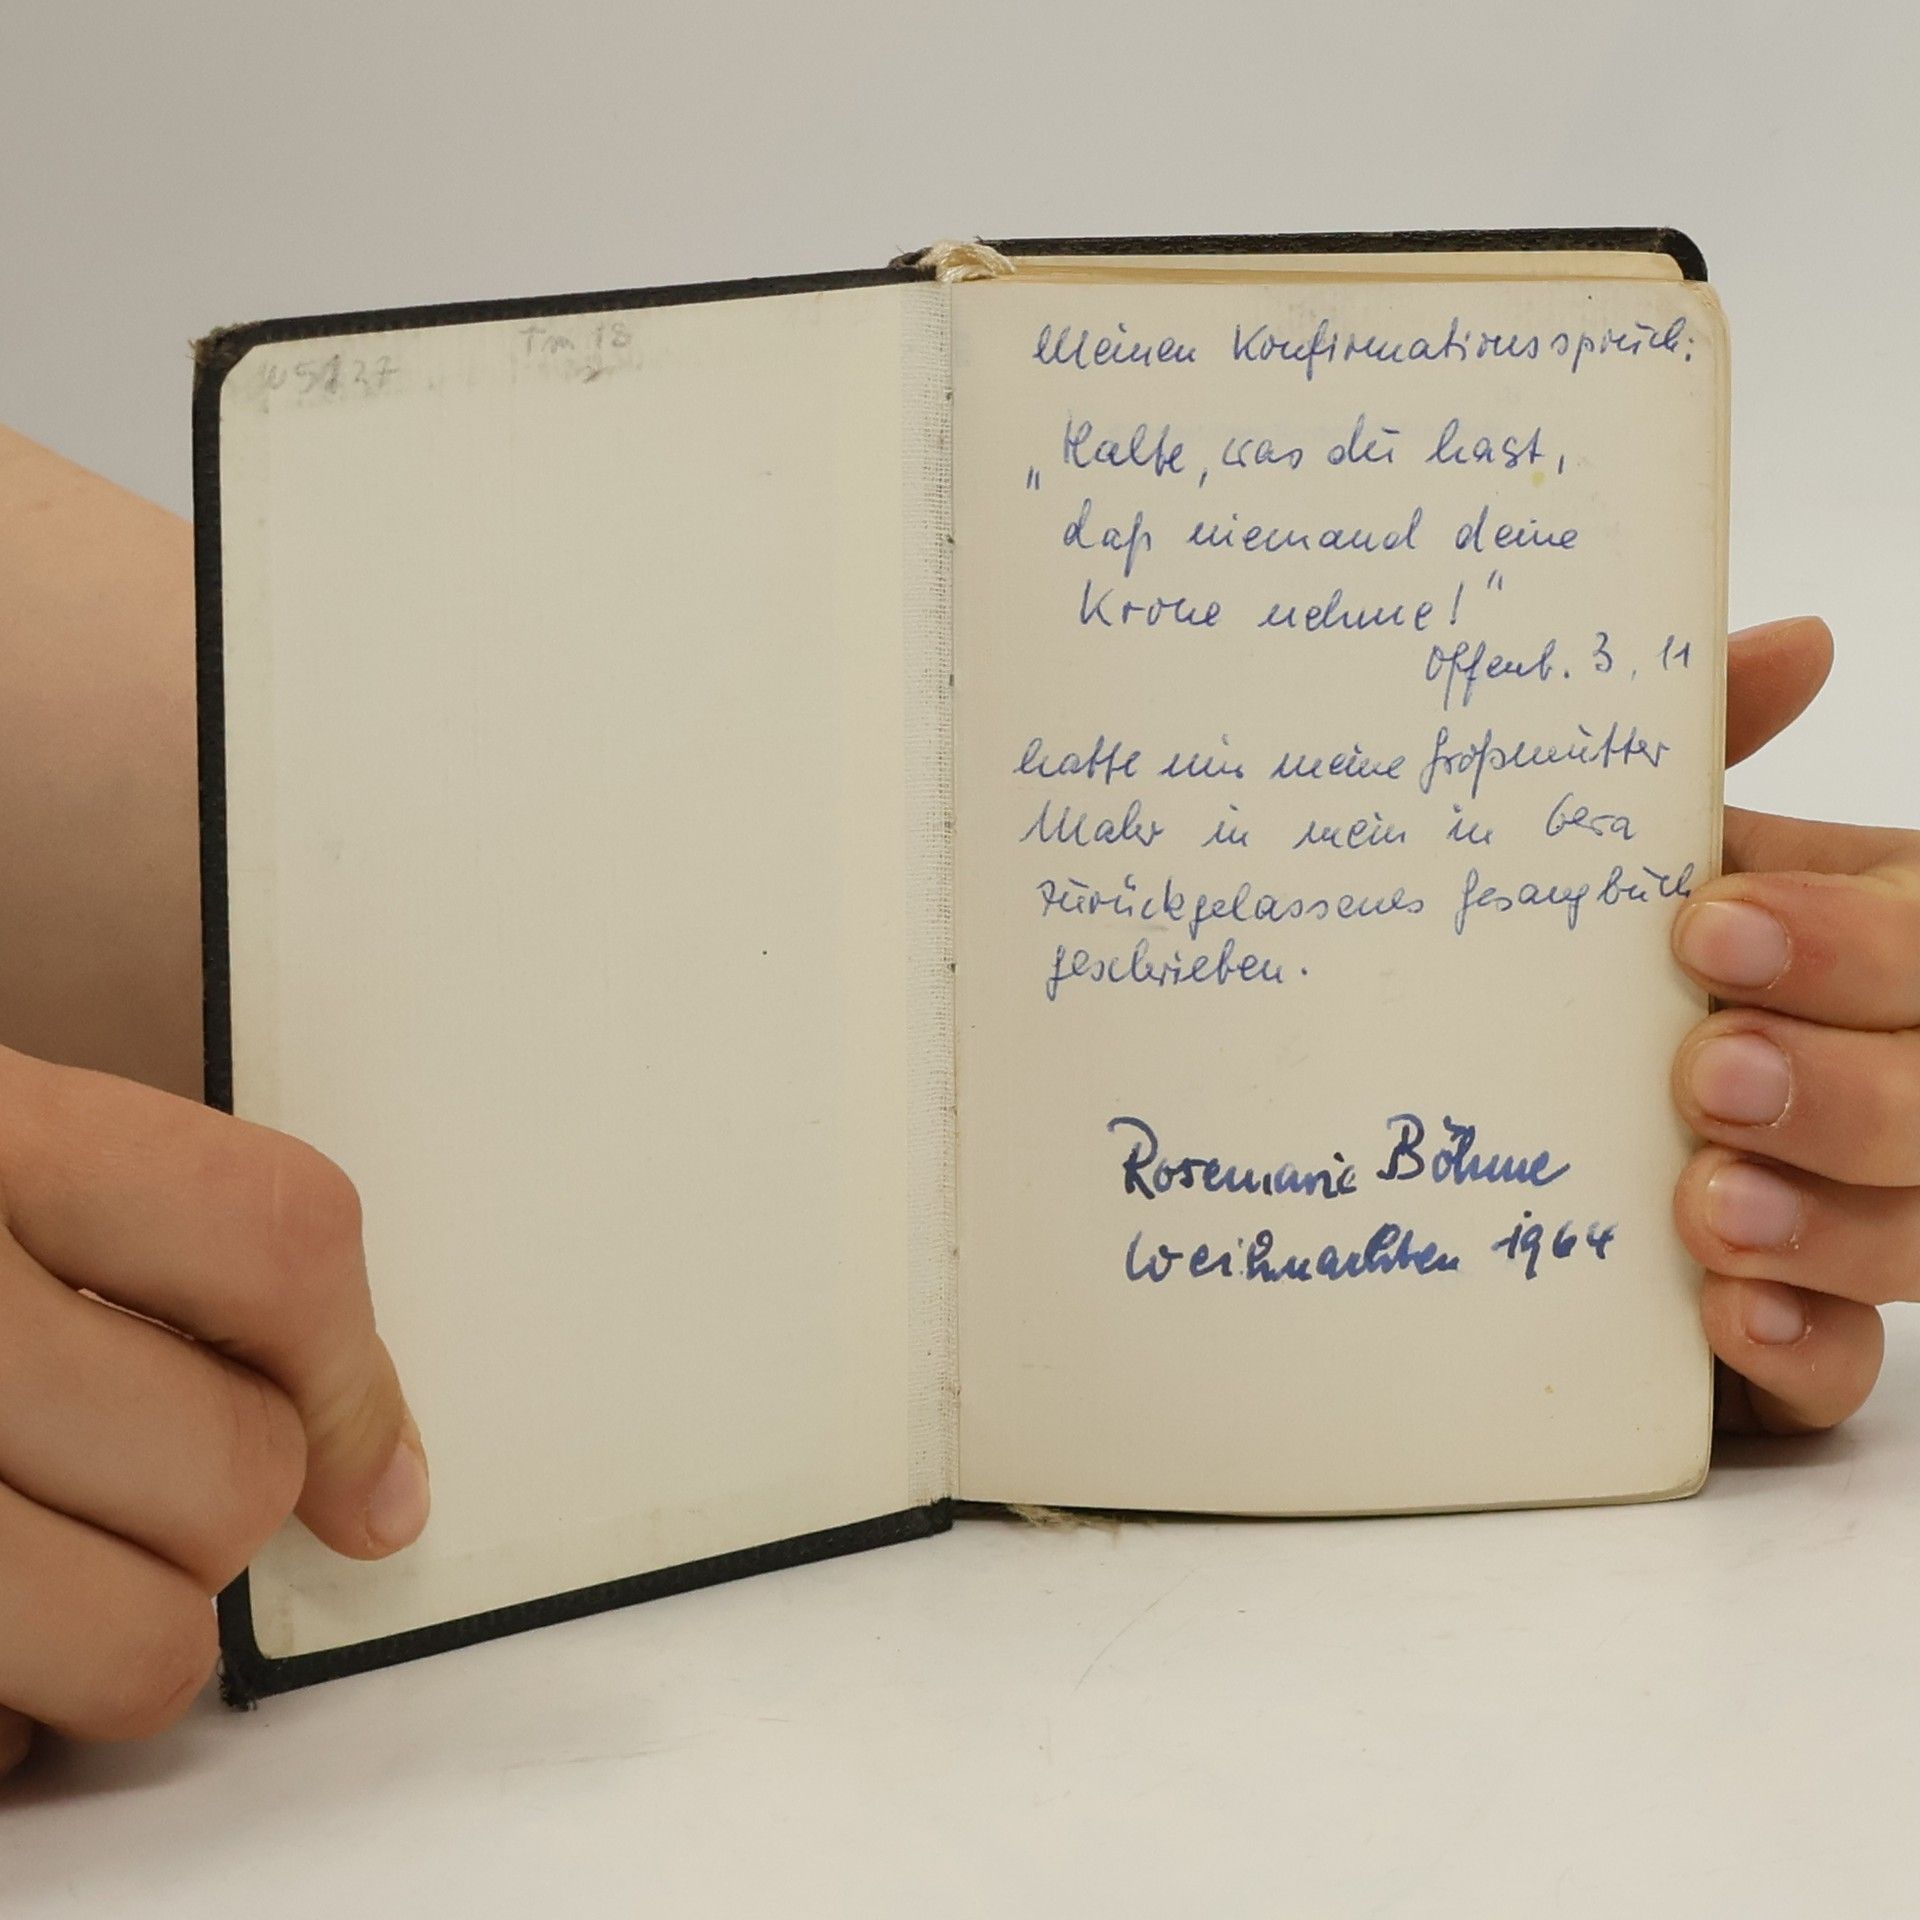 Tm 18
Meinen Konfirmationsspruch:
„Halte, was du hast,
daß niemand deine
Krone nehme!“
Offenb. 3, 11
hatte mir meine Großmutter
Mahr in mein in Gera
zurückgelassenes Gesangbuch
geschrieben.
Rosemarie Böhme
Weihnachten 1964